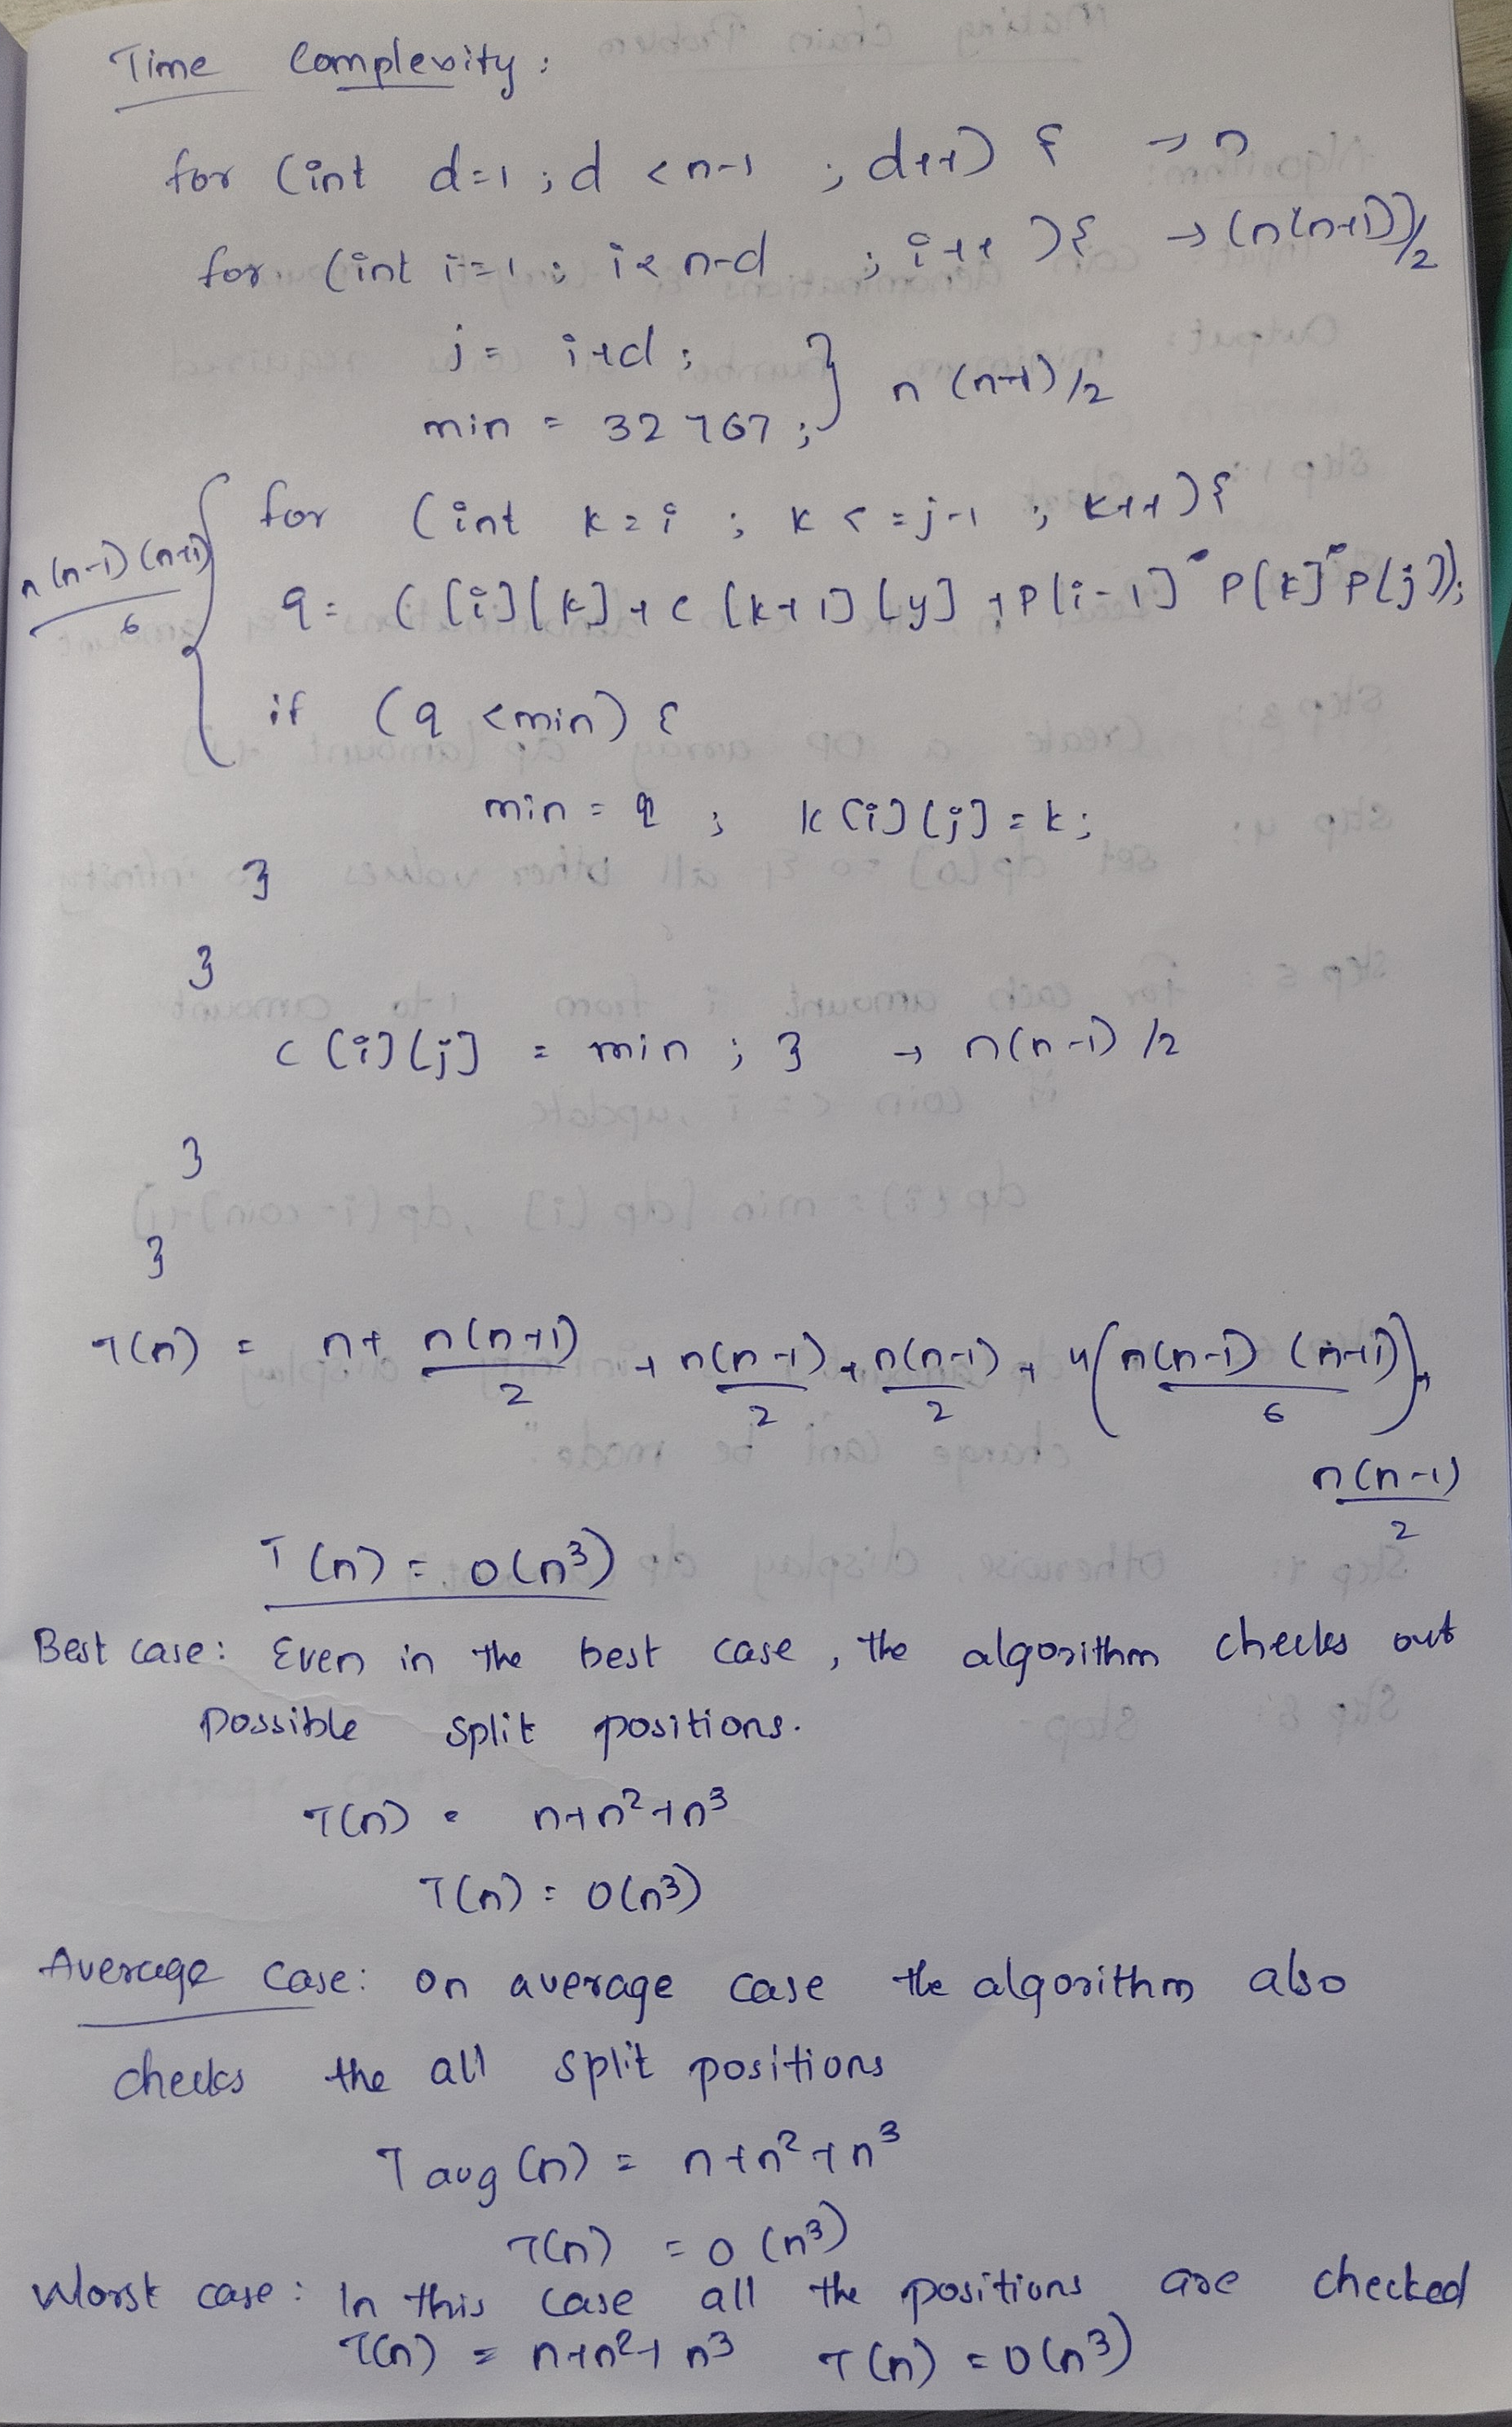 Time Complexity:
for (int d=1 ; d < n-1 ; d++) { → n
for (int i=1 ; i < n-d ; i++ ) { → (n(n+1))/2
j = i+d ;
min = 32767 ; } n (n-1) /2
for (int k=i ; k <= j-1 ; k++) {
n(n-1)(n+1)/6 { q = C[i][k] + c[k+1][y] + P[i-1] * P[k] * P[j]);
if (q <min) {
min = q ; k[i][j] = k;
}
}
c[i][j] = min ; } → n(n-1) /2
}
}
T(n) = n + n(n+1)/2 + n(n-1)/2 + n(n-1)/2 + 4(n(n-1)(n+1)/6) +
n(n-1)/2
T(n) = O(n³)
Best case: Even in the best case, the algorithm checks out
possible split positions.
T(n) = n+n²+n³
T(n) = O(n³)
Average case: on average case the algorithm also
checks the all split positions
Tavg(n) = n+n²+n³
T(n) = O(n³)
Worst case: In this case all the positions are checked
T(n) = n+n²+n³ T(n) = O(n³)